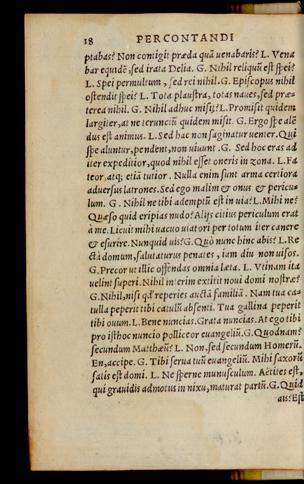 18 PERCONTANDI
ptabas? Non contigit præda quã uenabaris? L. Vena
bar equidẽ, sed irata Delia. G. Nihil reliquũ est spei?
L. Spei permultum, sed rei nihil. G. Episcopus nihil
ostendit spei? L. Tota plaustra, totas naues, sed præ
terea nihil. G. Nihil adhuc misit? L. Promisit quidem
largiter, at ne terunciũ quidem misit. G. Ergo spe alẽ
dus est animus. L. Sed hac non saginatur uenter. Qui
spe aluntur, pendent, non uiuunt. G. Sed hoc eras ad
iter expeditior, quod nihil esset oneris in zona. L. Fa
teor, atq; etiã tutior. Nulla enim sunt arma certiora
aduersus latrones. Sed ego malim & onus & pericu
lum. G. Nihil ne tibi ademptũ est in uia? L. Mihi ne?
Quæso quid eripias nudo? Alijs citius periculum erat
à me. Licuit mihi uacuo uiatori per totum iter canere
& esurire. Nunquid uis? G. Quò nunc hinc abis? L. Re
ctà domum, salutaturus penates, iam diu non uisos.
G. Precor ut illic offendas omnia læta. L. Vtinam ita
uelint superi. Nihil in erim extitit noui domi nostræ?
G. Nihil, nisi qđ reperies auctã familiã. Nam tua ca=
tulla peperit tibi catulũ absenti. Tua gallina peperit
tibi ouum. L. Bene nuncias. Grata nuncias. At ego tibi
pro isthoc nuncio polliceor euangeliũ. G. Quodnam?
secundum Matthæũ? L. Non, sed secundum Homerũ.
En, accipe. G. Tibi serua tuũ euangeliũ. Mihi saxorũ
satis est domi. L. Ne sperne munusculum. Aëtites est,
qui grauidis admotus in nixu, maturat partũ. G. Quid
ais? Est